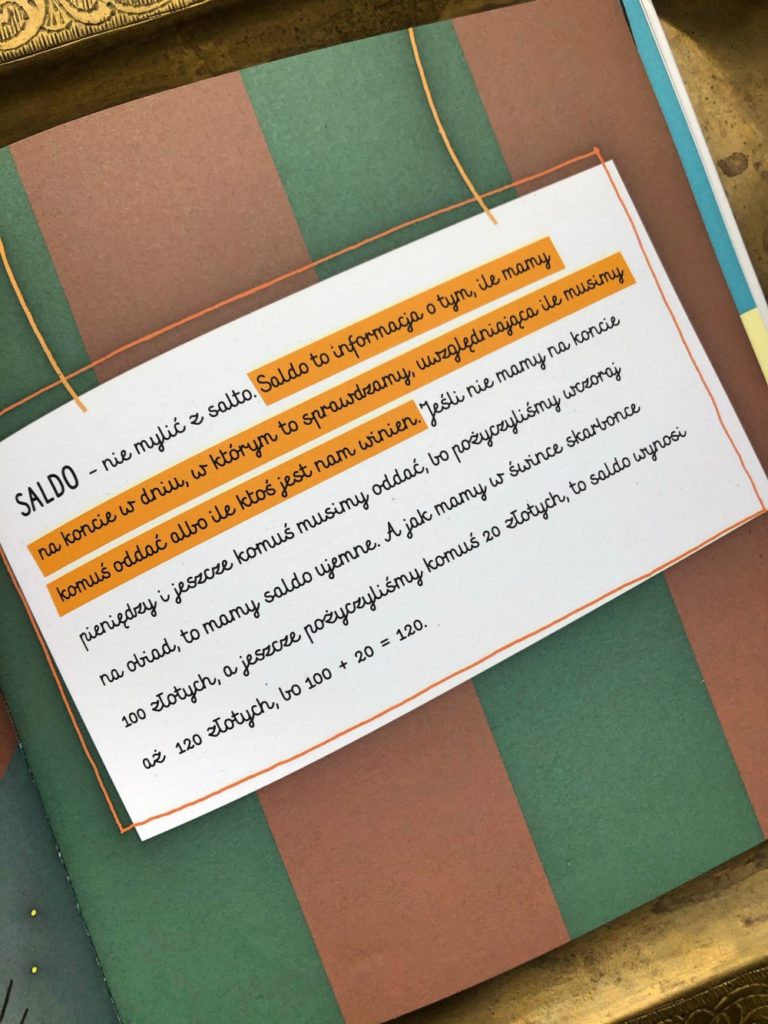 SALDO - nie mylić z salto. Saldo to informacja o tym, ile mamy
na koncie w dniu, w którym to sprawdzamy, uwzględniająca ile musimy
komuś oddać albo ile ktoś jest nam winien. Jeśli nie mamy na koncie
pieniędzy i jeszcze komuś musimy oddać, bo pożyczyliśmy wczoraj
na obiad, to mamy saldo ujemne. A jak mamy w śwince skarbonce
100 złotych, a jeszcze pożyczyliśmy komuś 20 złotych, to saldo wynosi
aż 120 złotych, bo 100 + 20 = 120.